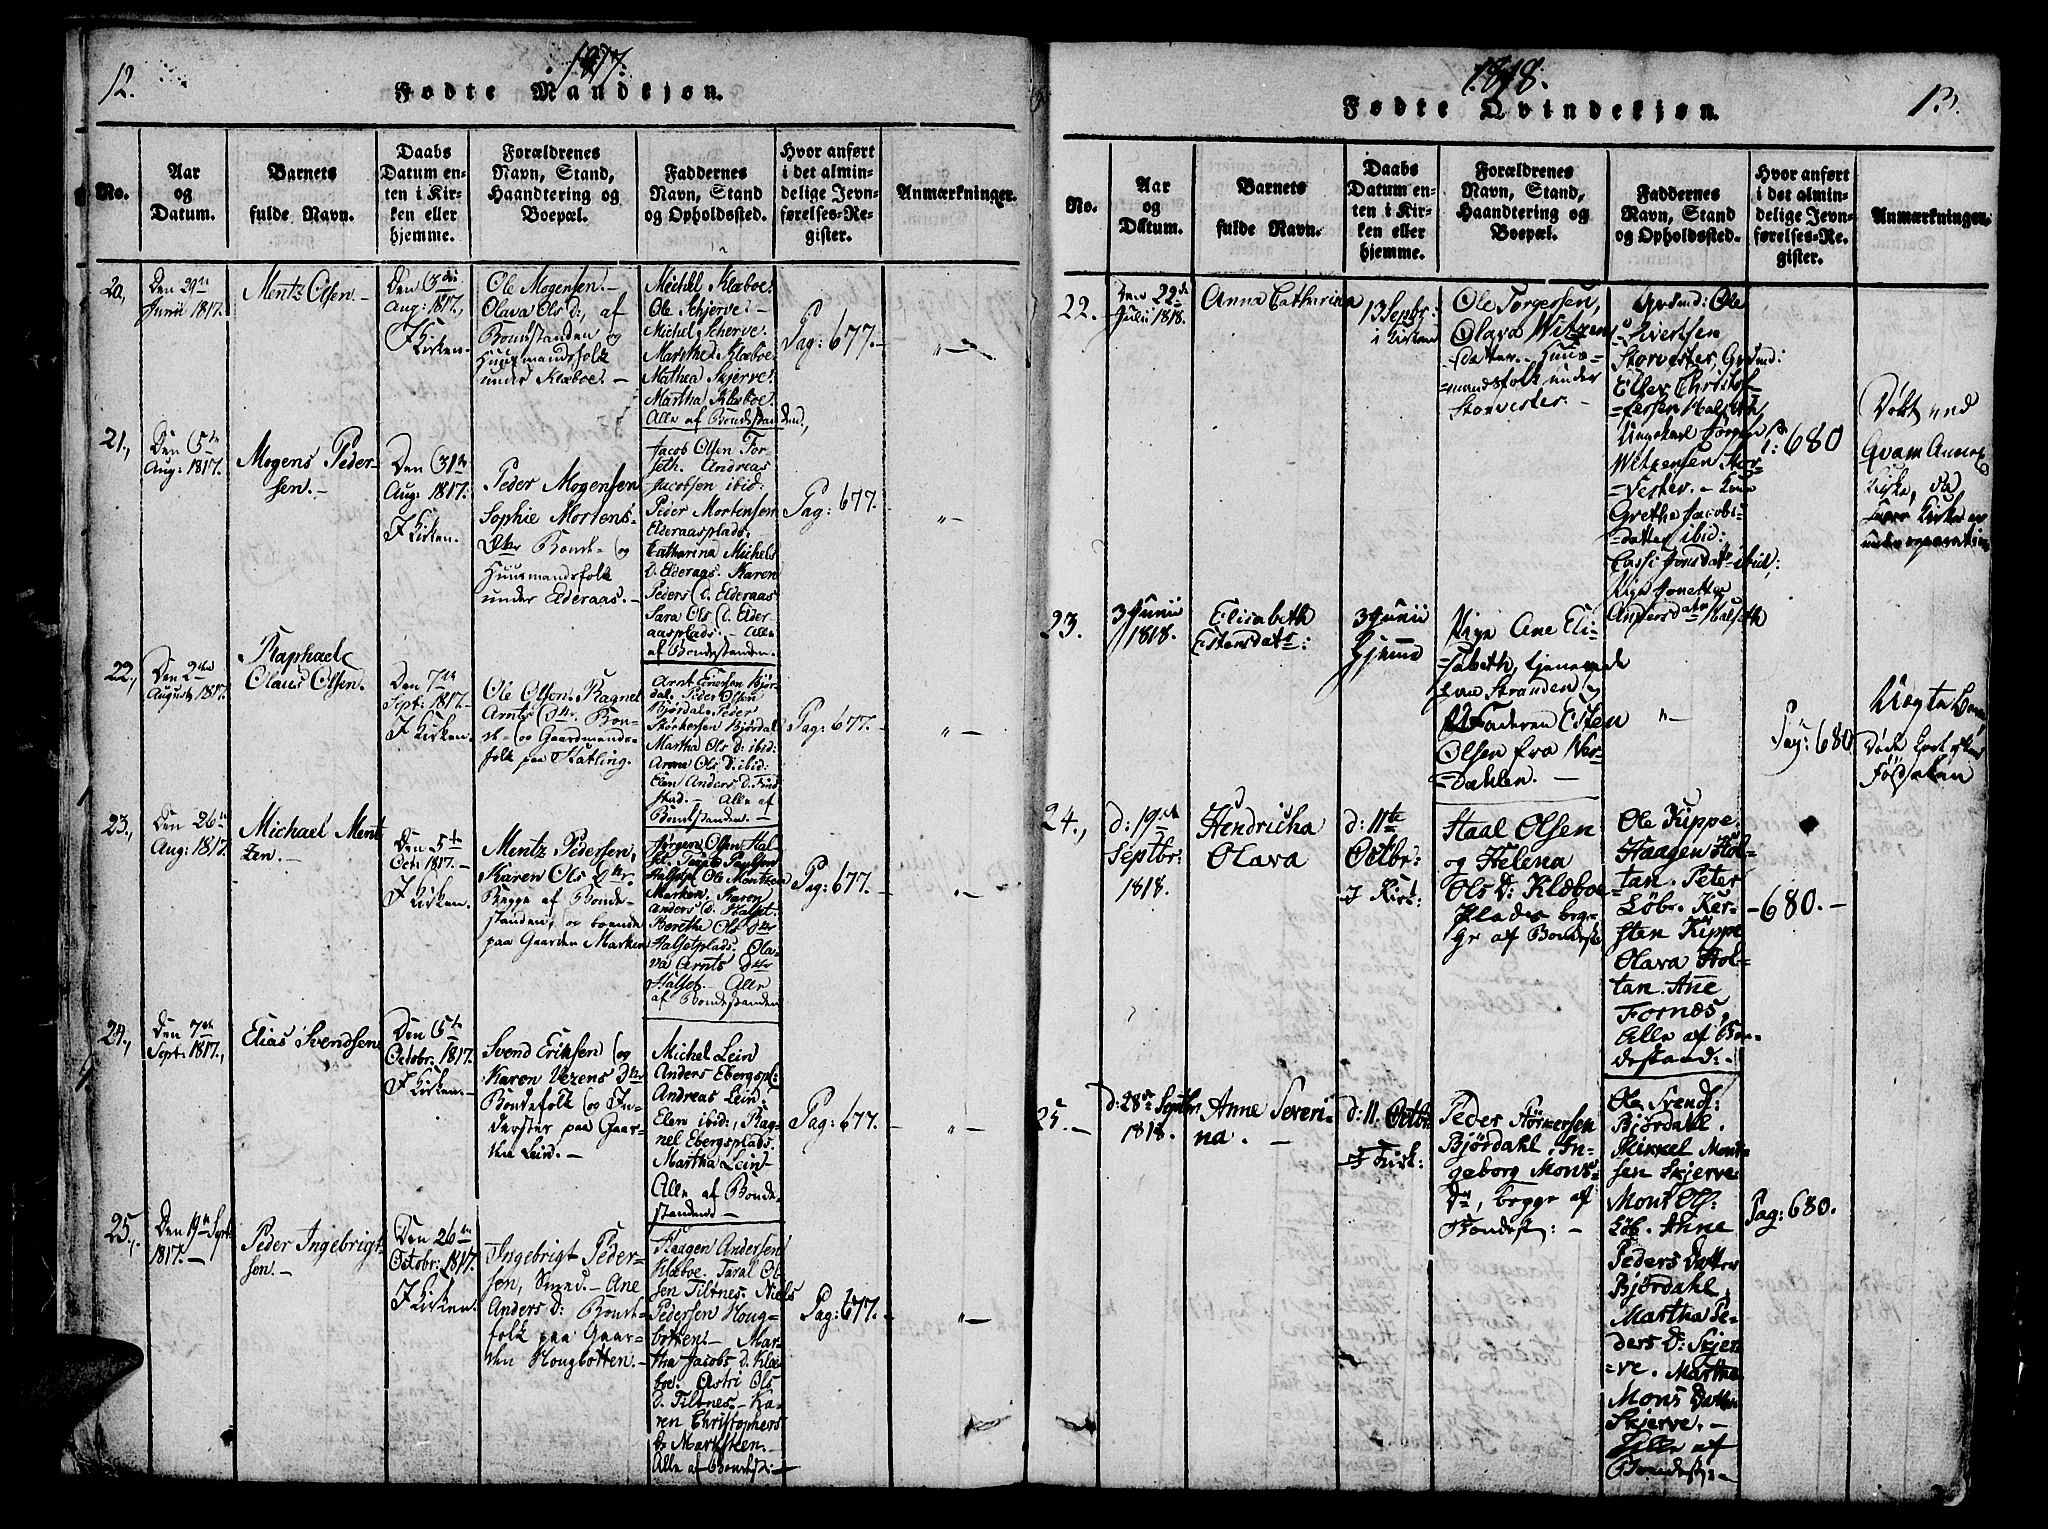 12.
1817.
Fødte Mandkjøn.
No.
Aar
og
Datum.
Barnets
fulde Navn.
Daabs
Datum en-
ten i Kir-
ken eller
hjemme.
Forældrenes
Navn, Stand,
Haandtering og
Boepæl.
Faddernes
Navn, Stand
og Opholdssted.
Hvor anført
i det almin-
delige Jevn-
førelses-Re-
gister.
Anmærkninger.
20,
Den 29de
Junii 1817.
Mentz Olsen.-
Den 3die
Aug: 1817,
I Kirken.
Ole Mogensen.-
Olava Ols D:, af
Bondestanden og
Huusmandsfolk
under Klæboe.-
Michel Klæboe.
Ole Schjerve.-
Michel Scherve.
Marethe Klæboe.
Mathea Skjerve.
Martha Klæboe.
Alle af Bondestanden,
Pag: 677.-
"-
21.,
Den 5te
Aug: 1817.
Mogens Peder-
sen.-
Den 31te
Aug: 1817.
I Kirken.
Peder Mogensen
Sophie Mortens-
Dtr Bonde- og
Huusmandsfolk
under Elderaas.-
Jacob Olsen For-
seth. Andreas
Jacobsen ibid:
Peder Mortensen
Elderaasplads.
Catharina Michels
D. Elderaas. Karen
Peders D. Elderaas
Sara Ols D. Elder-
aasplads:- Alle
af Bondestanden.
Pag: 677.
"-
22.,
Den 2den
Augusti 1817.
Raphael
Olaus Olsen.
Den 7de
Sept: 1817.
I Kirken.
Ole Olsen. Ragnel
Arnts Dtr. Bon-
de- og Gaardmands-
folk paa Hatling.
Arnt Bjør-
dal. Peder Olsen
Bjordal. Peder
Størkersen Bjørdal
Martha Ols D: ibid:
Arne Ols D: ibid:
Elen Anders D.
Alle af
Bondestanden.-
Pag: 677.-
"-
23.,
Den 26de
Aug: 1817.
Michael Ment-
zen.-
Den 5te
Oct: 1817.-
I Kirken.
Mentz Pedersen,
Karen Ols Dtr.
Begge af Bonde-
standen, og boende
paa Gaarden Marken
Jørgen Olsen Hal-
set. Paulsen
Halset Ole Mentzen
Marken, Karen
Anders D. Halset.
Berethe Ols Dtr
Halsetplads. Ola-
va Arnts Dtr
Halset.- Alle
af Bondestanden
Pag: 677.-
"-
24.,
Den 7de
Sept: 1817.,
Elias Svendsen
Den 5te
Octobr: 1817.
I Kirken-
Svend Eriksen og
Karen Vezens Dtr
Bondefolk og In-
derster paa Gaar-
den Lein.-
Michel Lein
Anders Ebergspl:
Andreas Lein:
Elen ibid:, Rag-
nel Ebergsplads.
Martha Lein-
Alle af Bonde-
standen.-
Pag: 677.-
"-
25.,
Den 19de Sept:
1817.-
Peder Ingebrigt-
sen.-
Den 26de
Octobr: 1817.
I Kirken.
Ingebrigt Peder-
sen, Smed.- Ane
Anders D: Bonde-
folk paa Gaar-
den Hougbotten.-
Haagen Andersen
Klæboe. Taral Ol-
sen Tiltnes. Niels
Pedersen Houg-
botten.- Mar-
tha Jacobs D. Klæ-
boe. Astri Ols
D. Tiltnes.- Ka-
ren Christophers
D. Marksteen.-
Alle af Bondest:-
Pag: 677.-
"-
1818.
13.
Fødte Qvindekjøn.
No.
Aar
og
Datum.
Barnets
fulde Navn.
Daabs
Datum en-
ten i Kir-
ken eller
hjemme.
Forældrenes
Navn, Stand,
Haandtering og
Boepæl.
Faddernes
Navn, Stand
og Opholdssted.
Hvor anført
i det almin-
delige Jevn-
førelses-Re-
gister.
Anmærkninger.
22.
Den 22de
Julii 1818.
Anna Catharina
13 Septbr:
i Kirken
Ole Torgersen,
Olava Witzen-
datter. Huus-
mandsfolk under
Storvester.-
Grdmd: Ole
Sivertsen
Storvester, Grdmd:
Eller Christof-
fersen Halseth,
Ungekarl Jørgen
Witzensen Stor-
vester.- Kone
Grethe Jacobs-
datter ibid:
Jonsdat- ibid,
Pige Jonetta
Andersdatr Halseth
P: 680
Døbt ved
Qvam Annex
Kirke, da
Kirke er
under reparation
23.
3 Junii
1818.
Elisabeth
Estensdatr:
3 Junii
hjemme
Pige Ane Eli-
sabeth, tjenende
paa Stranden og
Faderen Esten
Olsen fra Ver-
dahlen.-
"-
Pag: 680
Uægte Barn
Døde kort efter
Fødselen
24.,
d: 19de
Septbr:
1818.
Hendricha
Olava
d: 11te
Octbr:
I Kirk:
Staal Olsen
og Helena
Ols D: Klæboe-
plads beg-
ge af Bondest:
Ole Kippe.
Haagen Hol-
tan. Peter
Løbr. Ker-
sten Kippe
Olava Hol-
tan. Ane
Fornæs,
Alle af Bon-
destand:-
-680.-
25.-
d: 28de Septbr
1818.
Anne Severi-
na.-
d: 11. Octbr
I Kirk:
Peder Størkersen
Bjørdahl, In-
geborg Mons
Dr, begge af
Bondest:-
Ole Svends:
Bjørdahl.
Mikkel Mont-
sen Skjerve
Mont Ols:
Løb. Anne
Peders Datter
Bjørdahl,
Martha Pe-
ders D: Skjer-
ve. Martha
Mons Datter
Skjerve.-
Alle af
Bondest:-
Pag: 680.